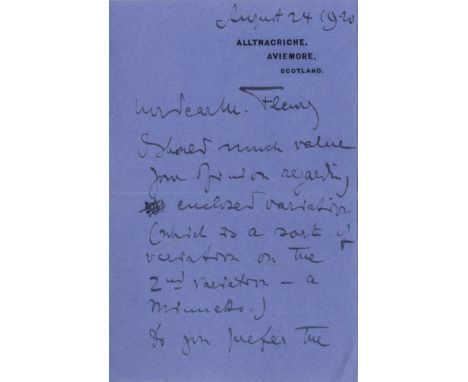 August 24 1920
ALLTNACRICHE,
AVIEMORE,
SCOTLAND.
My dear M. Fleury
I should much value
your opinion regarding
enclosed variation
(which is a sort of
variation on the
2nd variation - a
Minuetto.)
Do you prefer the